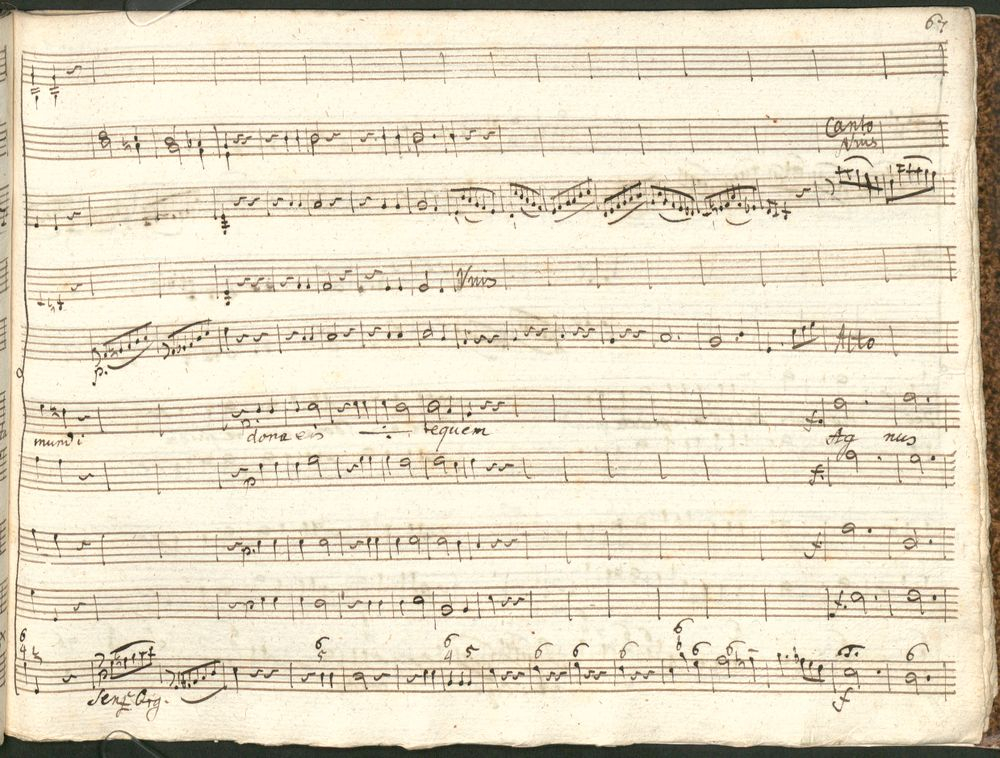 67
Canto
Vnis
Vnis
p.
Alto
mundi dona eis requem Ag nus
f.
p
f.
p.
f
p
f.
6
4
6
5
6
4 5
6
6
6
6
6
6
6
Senz Org.
f